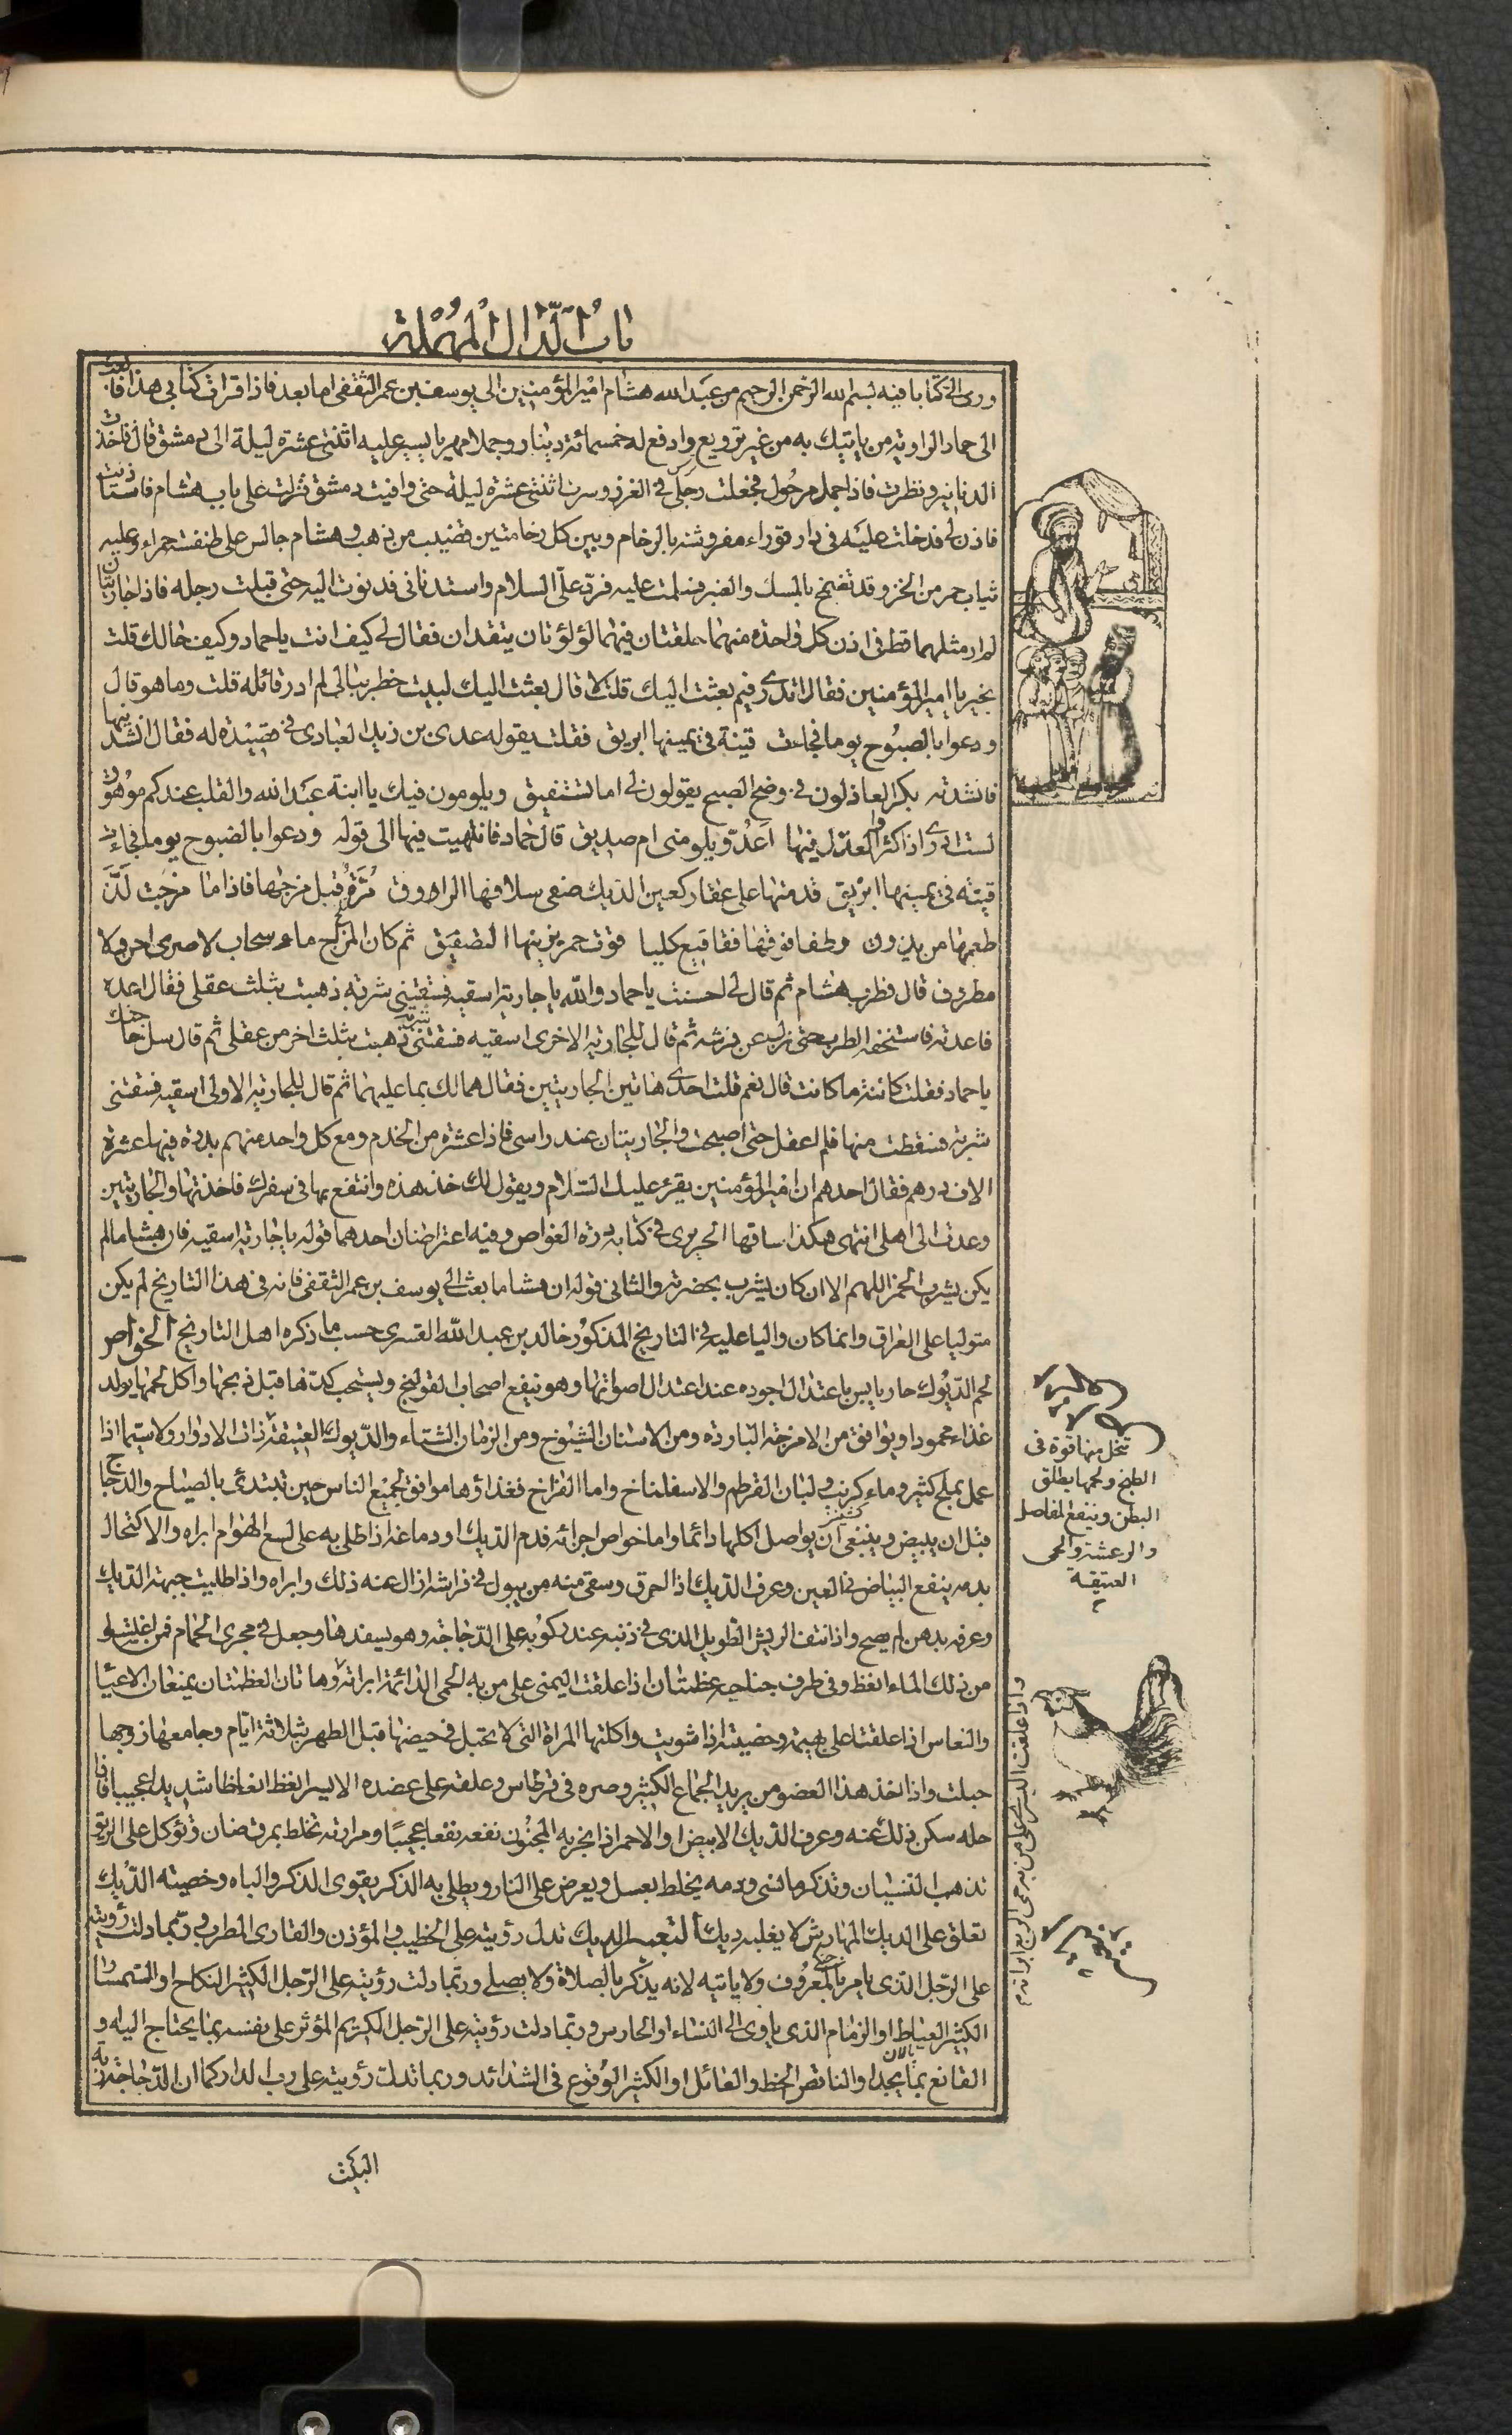 باب الدال المهملة
ورمى الى كتابا فيه بسم الله الرحمن الرحيم من عبد الله هشام امير المؤمنين الى يوسف بن عمر الثقفى اما بعد فاذا قرات كتابى هذا فابعث
الى حماد الراوية من ياتيك به من غير ترويع وادفع له خمسمائة دينار وجملا مهريا يسير عليه اثنتى عشرة ليلة الى دمشق قال فاخذت
الدنانير ونظرت فاذا جمل مرحول فجعلت رجلى فى الغرز وسرت اثنتى عشرة ليلة حتى وافيت دمشق فنزلت على باب هشام فاستاذنت
فاذن لى فدخلت عليه فى دار قوراء مفروشة بالرخام وبين كل رخامتين قضيب من ذهب وهشام جالس على طنفسة حمراء وعليه
ثياب حمر من الخز وقد تضمخ بالمسك والعنبر فسلمت عليه فرد على السلام واستدنانى فدنوت اليه حتى قبلت رجله فاذا جاريتان
لم ار مثلهما قط فى اذن كل واحدة منهما حلقتان فيهما لؤلؤتان يتقدان فقال لى كيف انت يا حماد وكيف حالك قلت
بخير يا امير المؤمنين فقال اتدرى فيم بعثت اليك قلت لا قال بعثت اليك لبيت خطر ببالى لم ادر قائله قلت وما هو قال
ودعوا بالصبوح يوما فجاءت قينة فى يمينها ابريق فقلت يقوله عدى بن زيد العبادى فى قصيدة له فقال انشدنيها
فانشدته بكر العاذلون فى وضح الصبح يقولون لى اما تستفيق ويلومون فيك يا ابنة عبد الله والقلب عندكم موهوق
لست ادرى اذ اكثروا العذل فيها اعدو يلومنى ام صديق قال حماد فانتهيت فيها الى قوله ودعوا بالصبوح يوما فجاءت
قينة فى يمينها ابريق قدمتها على عقار كعين الديك صفى سلافها الراووق مزة قبل مزجها فاذا ما مزجت لذ
طعمها من يذوق وطفا فوقها فقاقيع كليا قوت حمر يزينها التصفيق ثم كان المزاج ماء سحاب لا صرى اجن ولا
مطروق قال فطرب هشام ثم قال لى احسنت يا حماد والله يا جارية اسقيه فسقتنى شربة ذهبت بثلث عقلى فقال اعده
فاعدته فاستخفه الطرب حتى نزل عن فرشه ثم قال للجارية الاخرى اسقيه فسقتنى شربة ذهبت بثلث اخر من عقلى ثم قال سل حاجتك
يا حماد فقلت كائنة ما كانت قال نعم قلت احدى هاتين الجاريتين فقال هما لك بما عليهما ثم قال للجارية الاولى اسقيه فسقتنى
شربة فسقطت منها فلم اعقل حتى اصبحت والجاريتان عند راسى فاذا عشرة من الخدم ومع كل واحد منهم بدرة فيها عشرة
الاف درهم فقال احدهم ان امير المؤمنين يقرء عليك السلام ويقول لك خذ هذه وانتفع بها فى سفرك فاخذتها والجاريتين
وعدت الى اهلى انتهى هكذا ساقها الحريرى فى كتابه درة الغواص وفيه اعتراضان احدهما قوله يا جارية اسقيه فان هشاما لم
يكن يشرب الخمر اللهم الا ان كان يشرب بحضرته والثانى قوله ان هشاما بعث الى يوسف بن عمر الثقفى فانه فى هذا التاريخ لم يكن
متوليا على العراق وانما كان واليا عليه فى التاريخ المذكور خالد بن عبد الله القسرى حسب ما ذكره اهل التاريخ الخواص
لحم الديوك حار يابس باعتدال اجوده عند اعتدال اصواتها وهو ينفع اصحاب القولنج ويستحب كدها قبل ذبحها واكل لحمها يولد
غذاء محمودا ويوافق من الامزجة الباردة ومن الاسنان الشيوخ ومن الزمان الشتاء والديوك العتيقة ذات الادوار ولا سيما اذا
عمل بملح كثير وماء كرنب ولبان القرطم والاسفاناخ واما الفراخ فغذاؤها موافق لجميع الناس حين تبتدئ بالصياح والدجاج
قبل ان يبيض وينبغى ان يواصل اكلها دائما واما خواص اجزائه فدم الديك او دماغه اذا طلى به على لسع الهوام ابراه والاكتحال
بدمه ينفع البياض فى العين وعرف الديك اذا احرق وسقى منه من يبول فى فراشه ازال عنه ذلك وابراه واذا طليت جبهة الديك
وعرفه بدهن لم يصح واذا نتف الريش الطويل الذى فى ذنبه عند ركوبه على الدجاجة وهو يسفدها وجعل فى مجرى الحمام فمن اغتسل
من ذلك الماء انعظ وفى طرف جناحيه عظمتان اذا علقت اليمنى على من به الحمى الدائمة ابراته وهاتان العظمتان يمنعان الاعيا
والنعاس اذا علقتا على بهيمة وخصيته اذا شويت واكلتها المراة التى لا تحبل فى حيضها قبل الطهر بثلاثة ايام وجامعها زوجها
حبلت واذا اخذ هذا العضو من يريد الجماع الكثير وصره فى قرطاس وعلقه على عضده الايسر انعظ انعاظا شديدا عجيبا فاذا
حله سكن ذلك عنه وعرف الديك الابيض او الاحمر اذا بخر به المجنون نفعه نفعا عجيبا ومرارته تخلط بمرق ضان وتؤكل على الريق
تذهب النسيان وتذكر ما نسى ودمه يخلط بعسل ويعرض على النار ويطلى به الذكر يقوى الذكر والباه وخصيته الديك
تعلق على الديك المهارش لا يغلبه ديك التعبير الديك تدل رؤيته على الخطيب والمؤذن والقارى المطرب وربما دلت رؤيته
على الرجل الذى يامر بالمعروف ولا ياتيه لانه يذكر بالصلاة ولا يصلى وربما دلت رؤيته على الرجل الكثير النكاح او السمسار
الكثير العياط او الزمام الذى ياوى الى النساء او الحارس وربما دلت رؤيته على الرجل الكريم المؤثر على نفسه بما يحتاج اليه و
القانع بما يجد او الناقص الحظ والعائل او الكثير الوقوع فى الشدائد وربما تدلت رؤيته على رب الدار كما ان الدجاجة ربة
البيت
تخل منها قوة فى
الطبخ ولحمها يطلق
البطن وينفع المفاصل
والرعشة والحمى
العتيقة
واذا علقت اليسرى على من به حمى الربع ابراته م